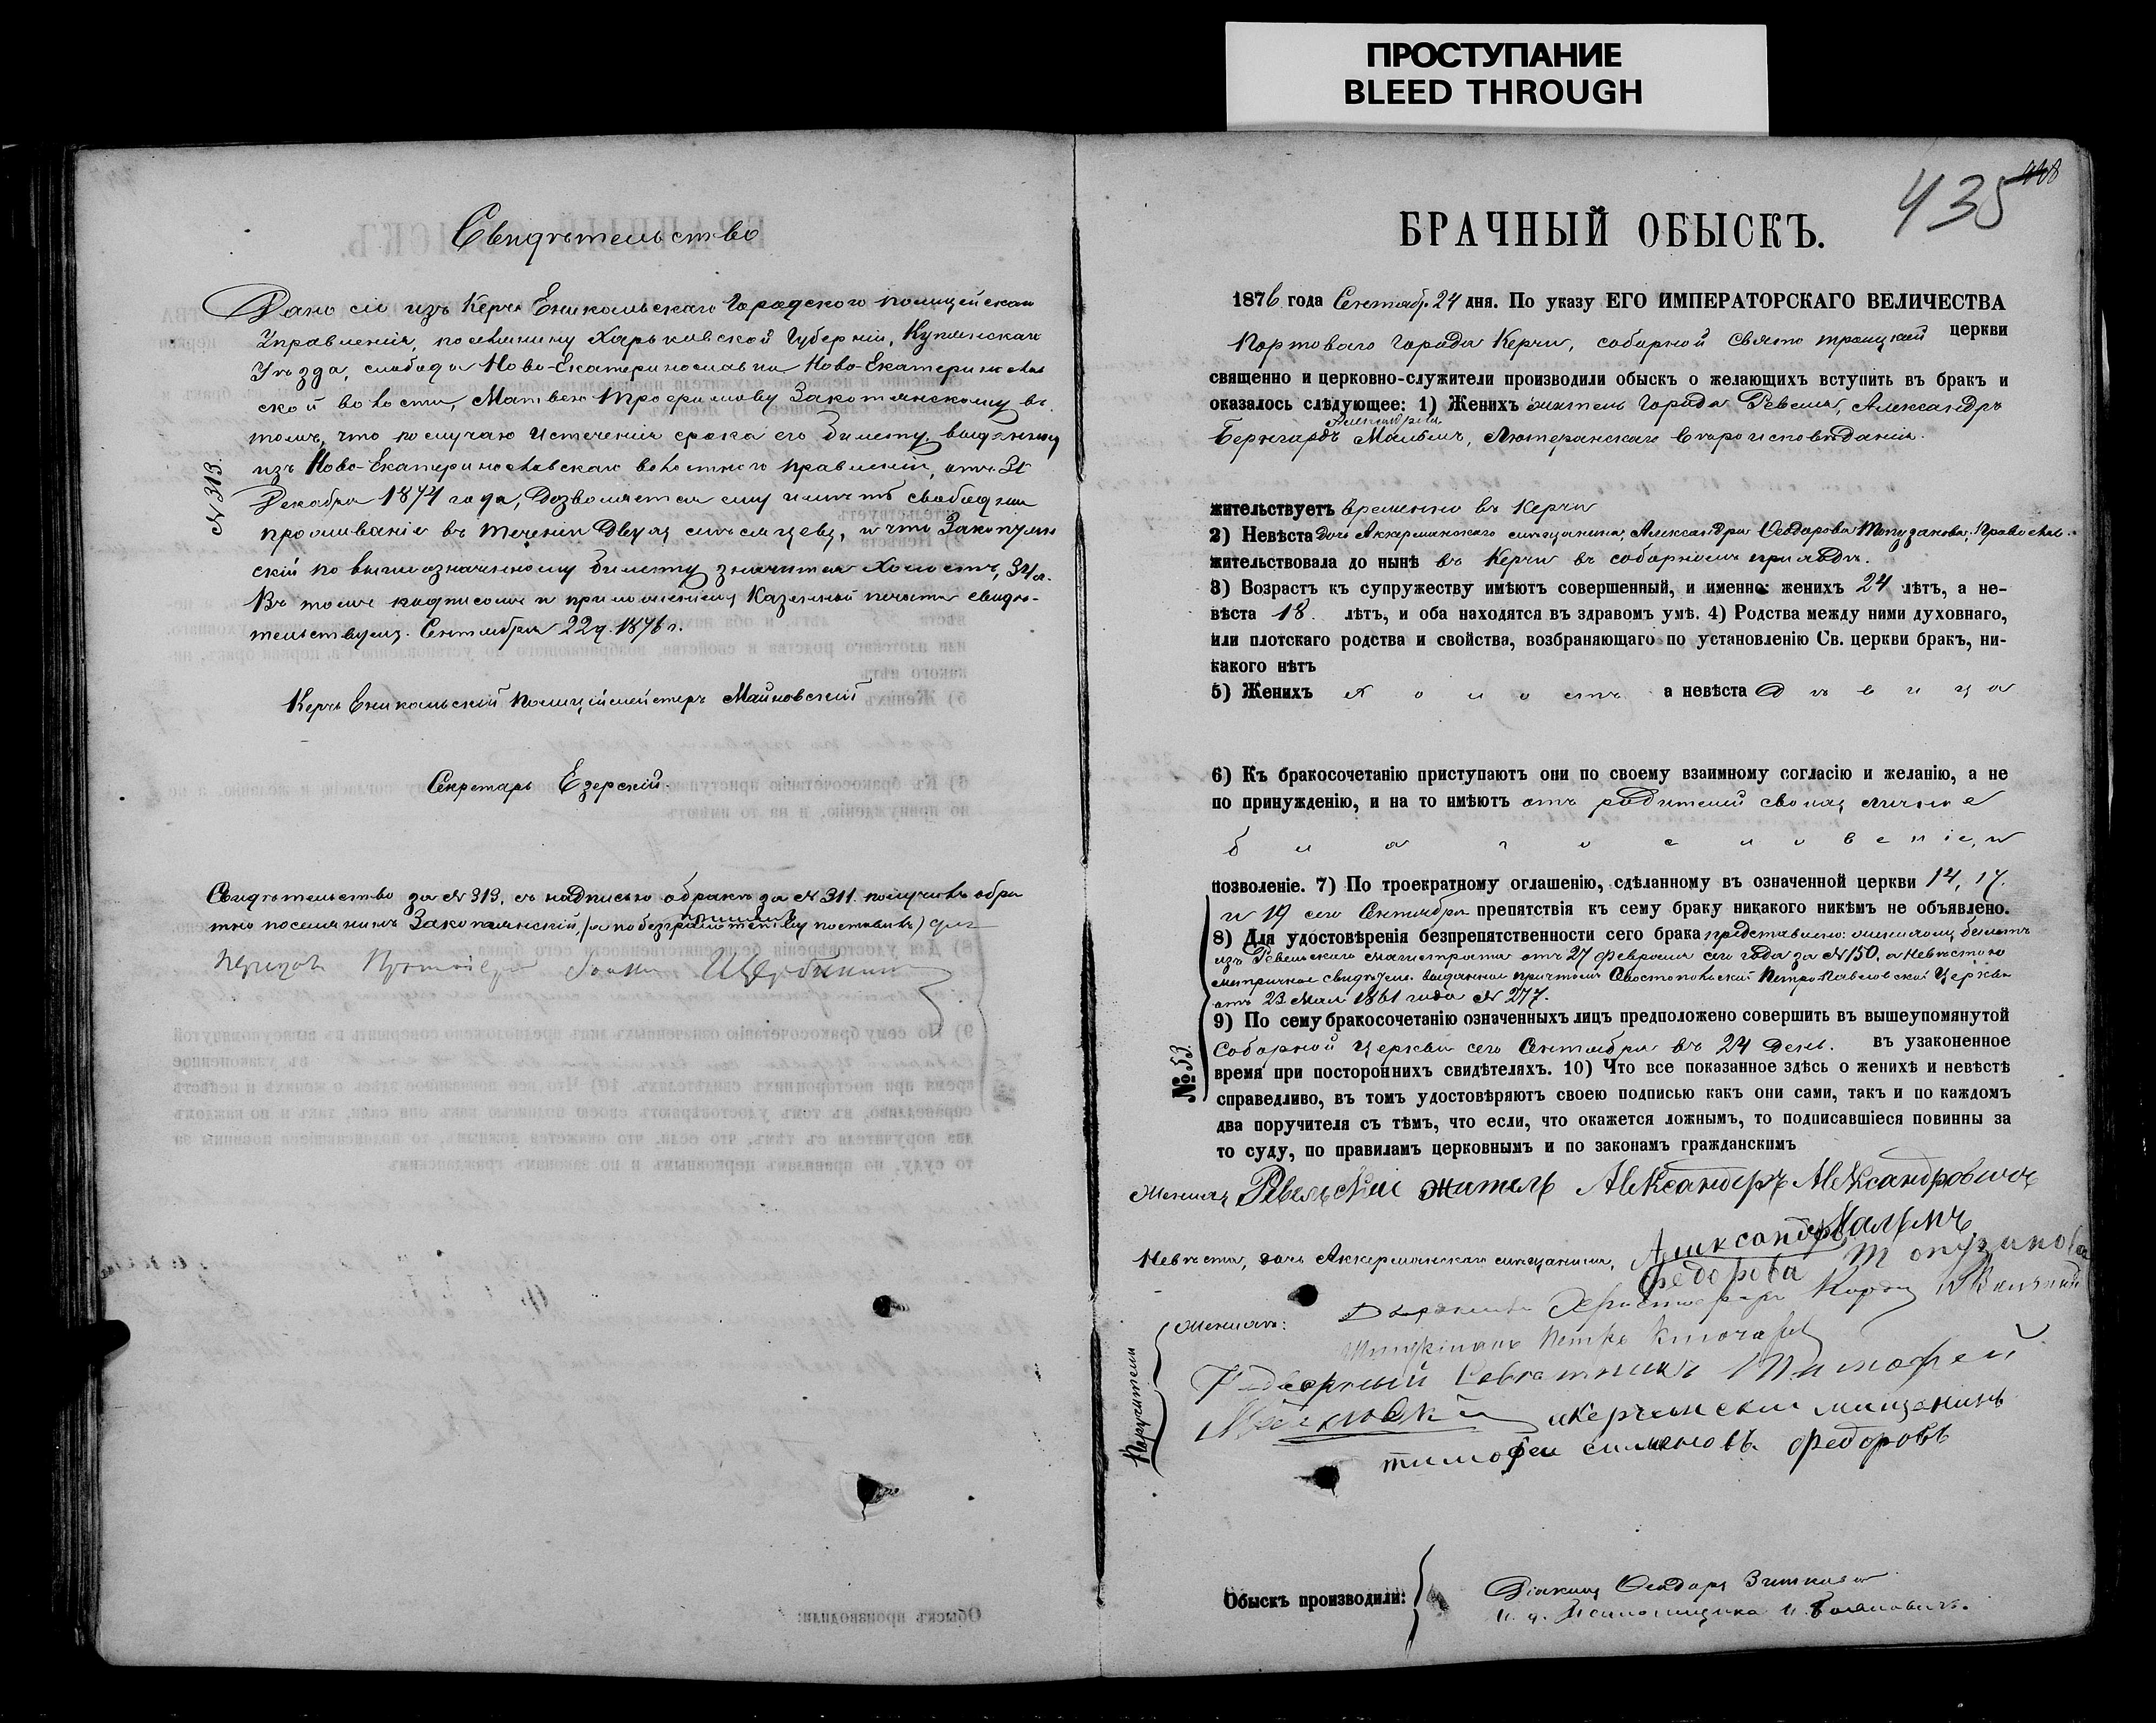 ПРОСТУПАНИЕ
BLEED THROUGH
Свидѣтельство
Дано сіе изъ Керчь Еникольскаго Городского полицейскаго
Управленія, поселянину Харьковской Губерніи, Купянскаго
Уѣзда, слободы Ново-Екатеринославля Ново-Екатеринослав
ской волости, Матвею Трофимову Закотянскому въ
томъ, что по случаю истеченія срока его билету, выданному
изъ Ново-Екатеринославскаго волостного правленія, отъ 31
Декабря 1874 года, дозволяется ему имѣть свободное
проживаніе въ теченіи двухъ мѣсяцевъ, и что Закотян
скій по вышеозначенному билету значится холостъ, 34 л.
Въ томъ подписомъ и приложеніемъ Казенной печати свидѣ-
тельствуемъ. Сентября 22 д. 1876 г.
№ 313.
Керчь Еникольскій Полиціймейстеръ Майновскій
Секретарь Езерскій.
Свидѣтельство за № 313, съ надписью о бракѣ за № 311 получилъ обра
тно поселянинъ Закотянскій, (а по безграмотству поставилъ)
Протоіерей Іоаннъ Щербинин
435
448
БРАЧНЫЙ ОБЫСКЪ.
1876 года Сентябр. 24 дня. По указу ЕГО ИМПЕРАТОРСКАГО ВЕЛИЧЕСТВА
Портоваго Города Керчи, соборной Свято Троицкой церкви
священно и церковно-служители производили обыскъ о желающихъ вступить въ бракъ и
оказалось слѣдующее: 1) Женихъ житель Города Ревеля, Александръ
Александровъ
Бернгардъ Мальмъ, Лютеранскаго вѣроисповѣданія.
жительствуетъ временно въ Керчи
2) Невѣста дочь Аккерманскаго мѣщанина, Александра Ѳеодорова Топузанова, Православ.
жительствовала до нынѣ въ Керчи въ соборномъ приходѣ.
3) Возрастъ къ супружеству имѣютъ совершенный, и именно: женихъ 24 лѣтъ, а не-
вѣста 18. лѣтъ, и оба находятся въ здравомъ умѣ. 4) Родства между ними духовнаго,
или плотскаго родства и свойства, возбраняющаго по установленію Св. церкви бракъ, ни-
какого нѣтъ
5) Женихъ Холостъ а невѣста Дѣвица
6) Къ бракосочетанію приступаютъ они по своему взаимному согласію и желанію, а не
по принужденію, и на то имѣютъ отъ родителей своихъ личное
благословеніе, и
позволеніе. 7) По троекратному оглашенію, сдѣланному въ означенной церкви 14, 17.
и 19 сего Сентября препятствія къ сему браку никакого никѣмъ не объявлено.
8) Для удостовѣренія безпрепятственности сего брака представлено: женихомъ билетъ
изъ Ревельскаго магистрата отъ 27 февраля сего года за № 150, а невѣстою
метричное свидѣтел. выданное причтомъ Севастопольской Петро Павловской Церкви
отъ 23 Мая 1861 года № 277.
9) По сему бракосочетанію означенныхъ лицъ предположено совершить въ вышеупомянутой
Соборной Церкви сего Сентября въ 24 день. въ узаконенное
время при постороннихъ свидѣтеляхъ. 10) Что все показанное здѣсь о женихѣ и невѣстѣ
справедливо, въ томъ удостовѣряютъ своею подписью какъ они сами, такъ и по каждомъ
два поручителя съ тѣмъ, что если, что окажется ложнымъ, то подписавшіеся повинны за
то суду, по правиламъ церковнымъ и по законамъ гражданскимъ
№ 53.
Женихъ Ревельскій житель Александеръ Александровичъ
Мальмъ
Невѣста, дочь Аккерманскаго мѣщанина, Александра
Федорова Топузанова
Поручители
Женихѣ: Христофоръ
Петръ Ключаревъ
Надворный Советникъ Тимофей
Керченскій мещенинъ
тимофеи симановъ федоровъ
Обыскъ производили:
Діаконъ Ѳеодоръ
И. д. Псаломщика И.